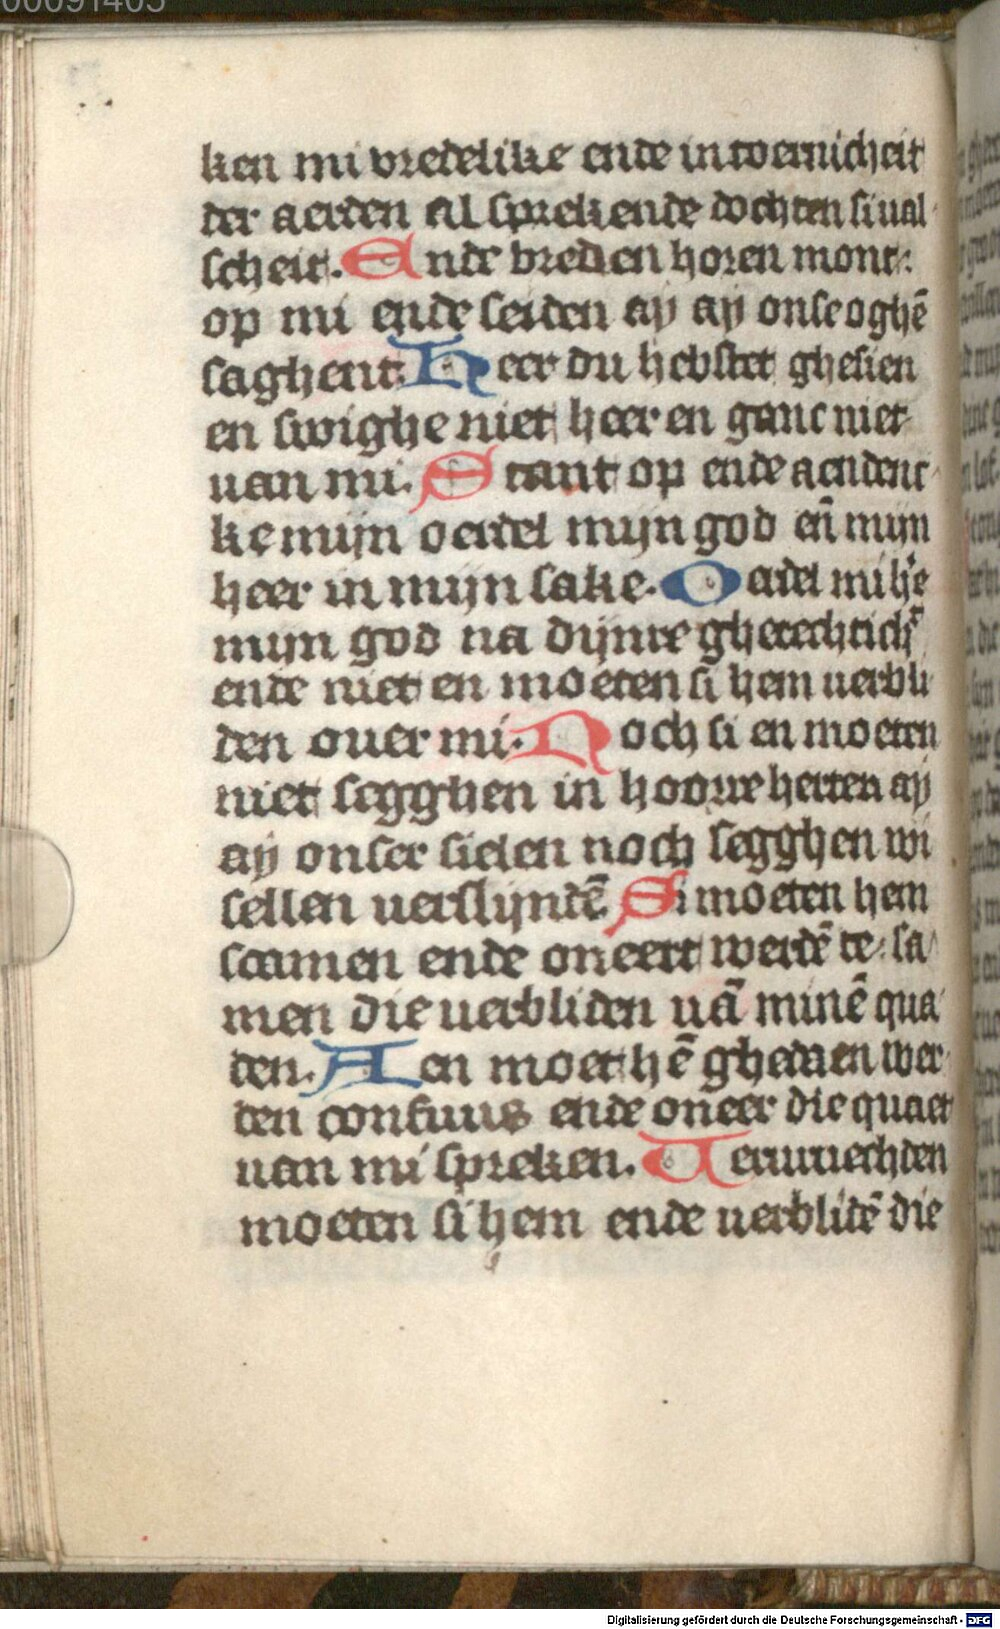 00091405
ken mi vredelike ende in toernicheit
der aerden al sprekende dochten si ual
scheit. Ende breden horen mont
op mi ende seiden ay ay onse oghē
saghent. Heer du hebstet ghesien
en swighe niet heer en ganc niet
uan mi. Stant op ende aendenc
ke mijn oerdel mijn god eñ mijn
heer in mijn sake. Oerdel mi
mijn god na dijnre
ende niet en moeten si hem uerbli
den ouer mi. Noch si en moeten
niet segghen in hoorre herten ay
ay onser sielen noch segghen wi
sellen uerslijndē Si moeten hem
scamen ende oneert werdē te sa
men die uerbliden uā minē qua
den. Aen moet hē ghedaen wer
den confuus ende oneer die quaet
uan mi spreken. Teruruechden
moeten si hem ende uerblidē die
Digitalisierung gefördert durch die Deutsche Forschungsgemeinschaft - DFG